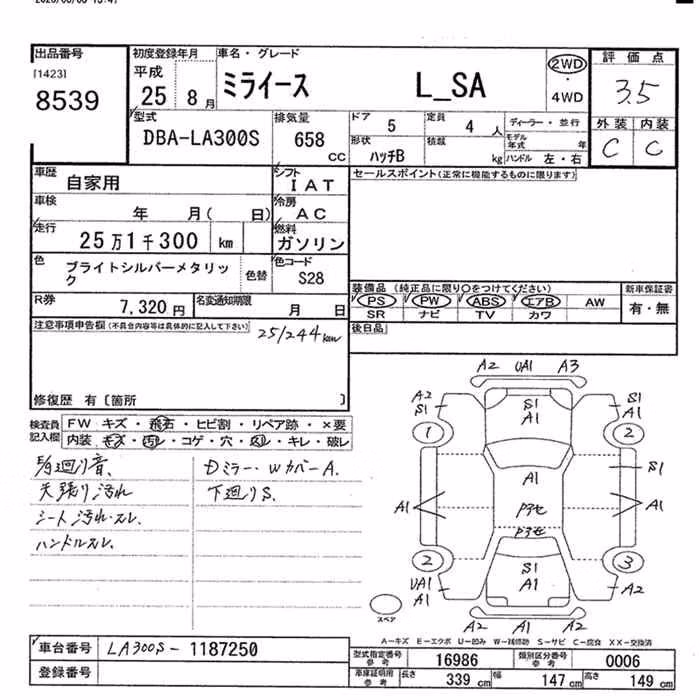 出品番号
[1423]
8539
初度登録年月
平成
25 8月
車名・グレード
ミライース L_SA
2WD
4WD
評価点
3.5
外装 内装
C C
型式
DBA-LA300S
排気量
658
CC
ドア 5
定員 4 人
ディーラー・並行
形状
ハッチB
積載
kg
モデル年式 年
ハンドル 左・右
車歴 自家用
シフト
IAT
セールスポイント(正常に機能するものに限ります)
車検
年 月( 日)
冷房
AC
走行
25万1千300 km
燃料
ガソリン
色
ブライトシルバーメタリック
色替
色コード
S28
装備品 (純正品に限り○をつけてください)
新車保証書
PS PW ABS エアB AW
有・無
SR ナビ TV カワ
R券
7,320円
名変通知期限
月 日
後日品
注意事項申告欄(不具合内容等は具体的に記入して下さい)
25/244km
修復歴 有〔箇所 〕
検査員
記入欄
FW キズ・飛石・ヒビ割・リペア跡・×要
内装 キズ・汚レ・コゲ・穴・スレ・キレ・破レ
天張り汚れ
シート汚れ・スレ.
ハンドルスレ.
Dミラー・WカバーA.
下廻りS.
A2 UA1 A3
A2
S1
S1
A1
S1
A1
1
2
S1
A1
A1
Pアセ
A1
Pアセ
2
3
S1
A1
UA1
A1
A2
スペア
A1 A2 A2
A-キズ E-エクボ U-凹み W-補修跡 S-サビ C-腐食 XX-交換済
車台番号 LA300S-1187250
登録番号
型式指定番号
参考
16986
類別区分番号
参考
0006
車庫証明用
参考
長さ 339 cm 幅 147 cm 高さ 149 cm